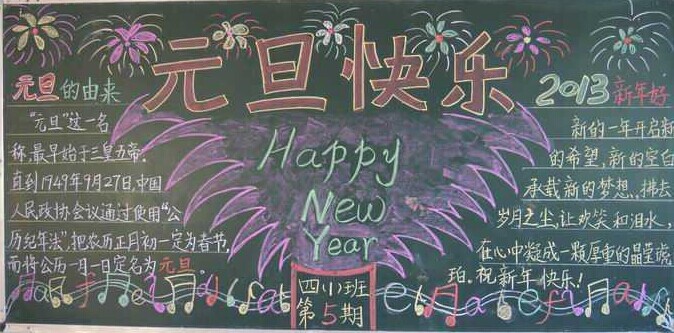 元旦快乐
元旦的由来
"元旦"这一名
称,最早始于三皇五帝.
直到1949年9月27日,中国
人民政协会议通过使用"公
历纪年法",把农历正月初一定为春节,
而将公历一月一日定名为元旦。
Happy
New
Year
四(1)班
第5期
2013新年好
新的一年开启新
的希望,新的空白
承载新的梦想,拂去
岁月之尘,让欢笑和泪水,
在心中凝成一颗厚重的晶莹琥
珀.祝新年快乐!